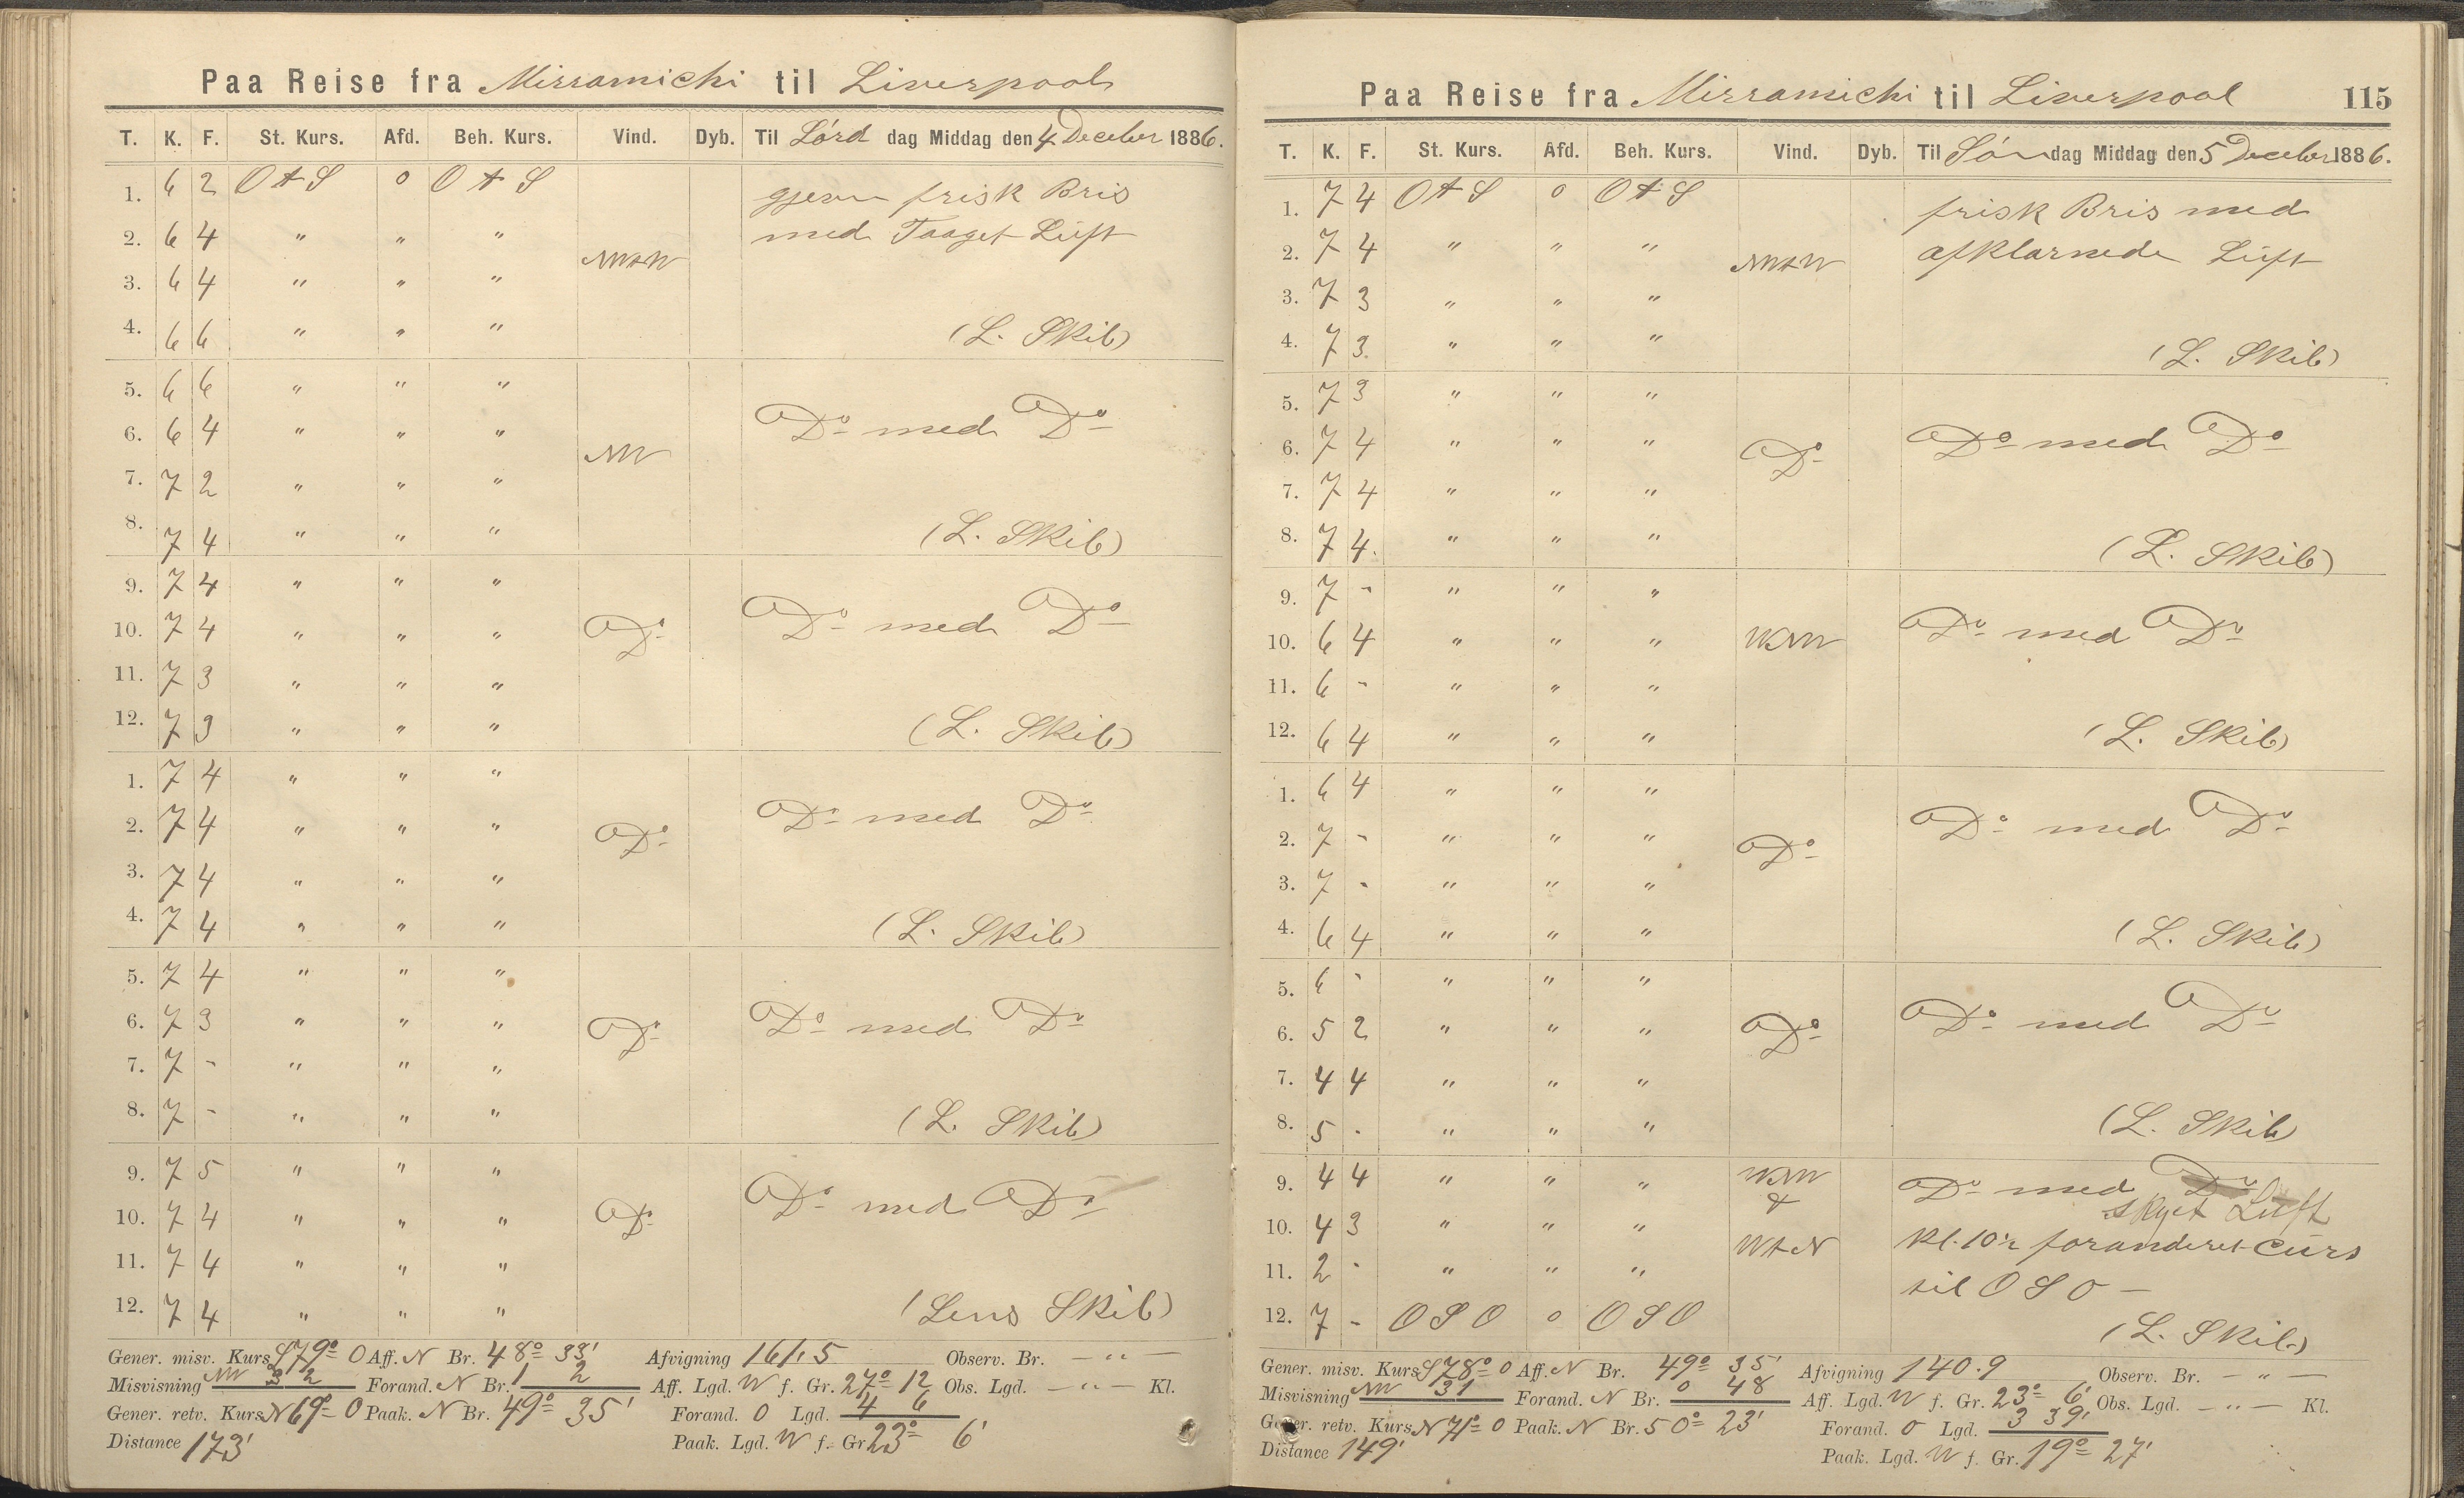 Paa Reise fra Mirramichi til Liverpool
T. K. F. St. Kurs. Afd. Beh. Kurs. Vind. Dyb. Til Lørd dag Middag den 4 December 1886.
1. 6 2 O t S o O t S gjevn frisk Bris
2. 6 4 " " " NW t W med Taaget Luft
3. 6 4 " " "
4. 6 6 " " " (L. Skib)
5. 6 6 " " "
6. 6 4 " " " NW Do med Do
7. 7 2 " " "
8. 7 4 " " " (L. Skib)
9. 7 4 " " "
10. 7 4 " " " Do Do med Do
11. 7 3 " " "
12. 7 3 " " " (L. Skib)
1. 7 4 " " "
2. 7 4 " " " Do Do med Do
3. 7 4 " " "
4. 7 4 " " " (L. Skib)
5. 7 4 " " "
6. 7 3 " " " Do Do med Do
7. 7 - " " "
8. 7 - " " " (L. Skib)
9. 7 5 " " "
10. 7 4 " " " Do Do med Do
11. 7 4 " " "
12. 7 4 " " " (Lens Skib)
Gener. misv. Kurs S 79° O Aff. N Br. 48° 33' Afvigning 161,5 Observ. Br. — " —
Misvisning NW 32 Forand. N Br. 1 2 Aff. Lgd. W f. Gr. 27° 12 Obs. Lgd. — " — Kl.
Gener. retv. Kurs N 69° O Paak. N Br. 49° 35' Forand. O Lgd. 4 6
Distance 173' Paak. Lgd. W f. Gr. 23° 6'
Paa Reise fra Mirramichi til Liverpool 115
T. K. F. St. Kurs. Afd. Beh. Kurs. Vind. Dyb. Til Søn dag Middag den 5 December 1886.
1. 7 4 O t S o O t S frisk Bris med
2. 7 4 " " " NW t W afklarnede Luft
3. 7 3 " " "
4. 7 3 " " " (L. Skib)
5. 7 3 " " "
6. 7 4 " " " Do Do med Do
7. 7 4 " " "
8. 7 4 " " " (L. Skib)
9. 7 - " " "
10. 6 4 " " " WNW Do med Do
11. 6 - " " "
12. 6 4 " " " (L. Skib)
1. 6 4 " " "
2. 7 - " " " Do Do med Do
3. 7 - " " "
4. 6 4 " " " (L. Skib)
5. 6 - " " "
6. 5 2 " " " Do Do med Do
7. 4 4 " " "
8. 5 - " " " (L. Skib)
9. 4 4 " " " WNW & Do med skyet Luft
10. 4 3 " " " W t N Kl. 10½ foranderet Curs
11. 2 - " " " til O S O —
12. 7 - O S O o O S O (L. Skib)
Gener. misv. Kurs S 78° O Aff. N Br. 49° 35' Afvigning 140.9 Observ. Br. — " —
Misvisning NW 31 Forand. N Br. 0 48 Aff. Lgd. W f. Gr. 23° 6' Obs. Lgd. — " — Kl.
Gener. retv. Kurs N 71° O Paak. N Br. 50° 23' Forand. O Lgd. 3 39'
Distance 149' Paak. Lgd. W f. Gr. 19° 27'